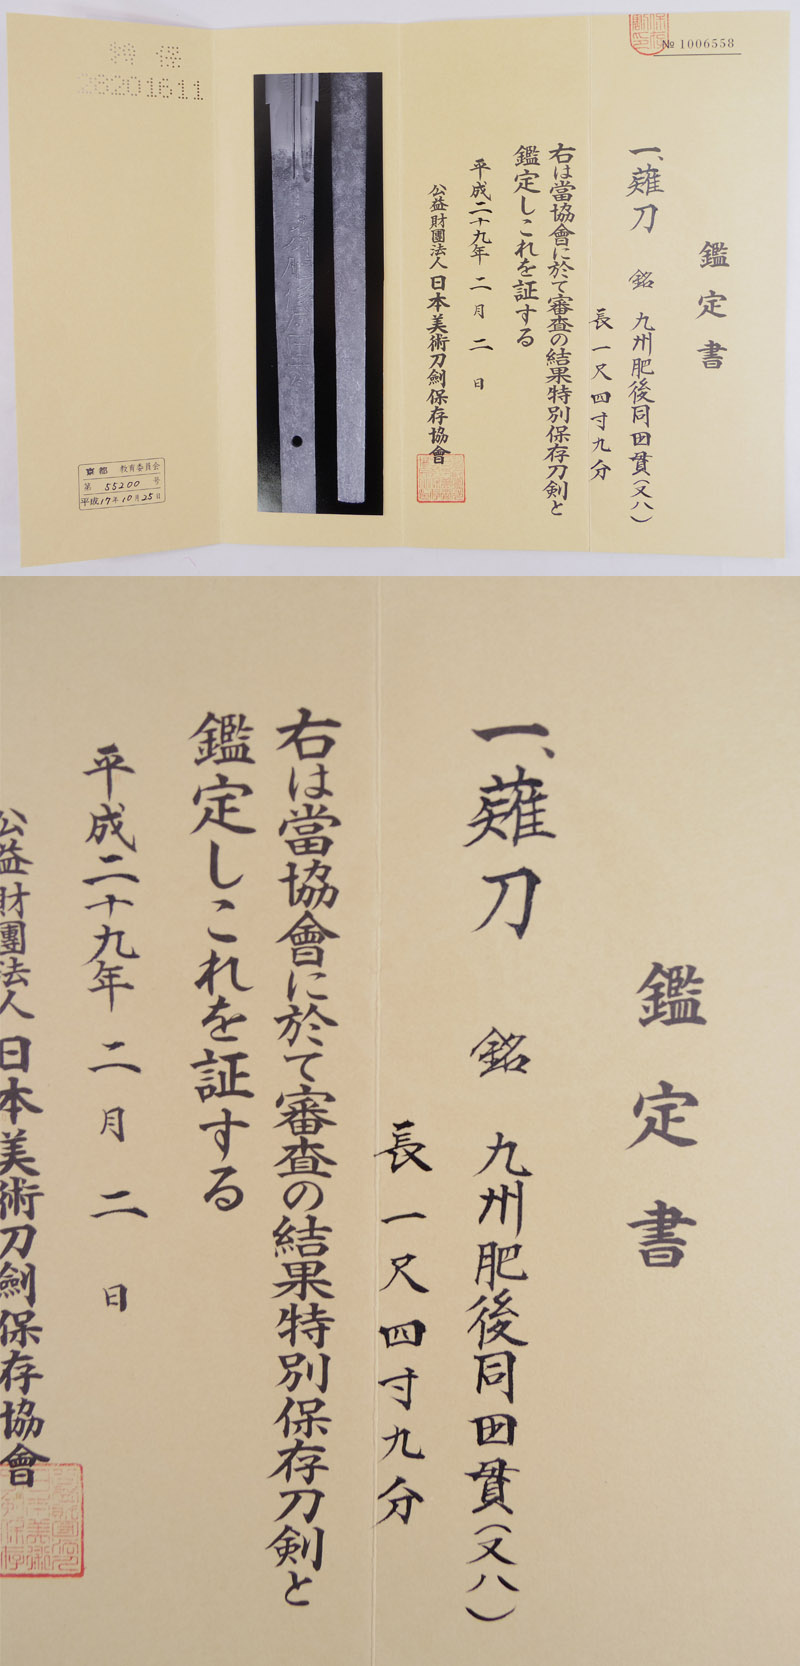 № 1006558
鑑定書
一、薙刀 銘 九州肥後同田貫(又八)
長一尺四寸九分
右は當協會に於て審査の結果特別保存刀剣と
鑑定しこれを証する
平成二十九年 二月 二日
公益財團法人 日本美術刀劍保存協會
特保
28201611
京都 教育委員会
第 55200 号
平成17年10月25日
鑑定書
一、薙刀 銘 九州肥後同田貫(又八)
長一尺四寸九分
右は當協會に於て審査の結果特別保存刀剣と
鑑定しこれを証する
平成二十九年 二月 二日
公益財團法人 日本美術刀劍保存協會